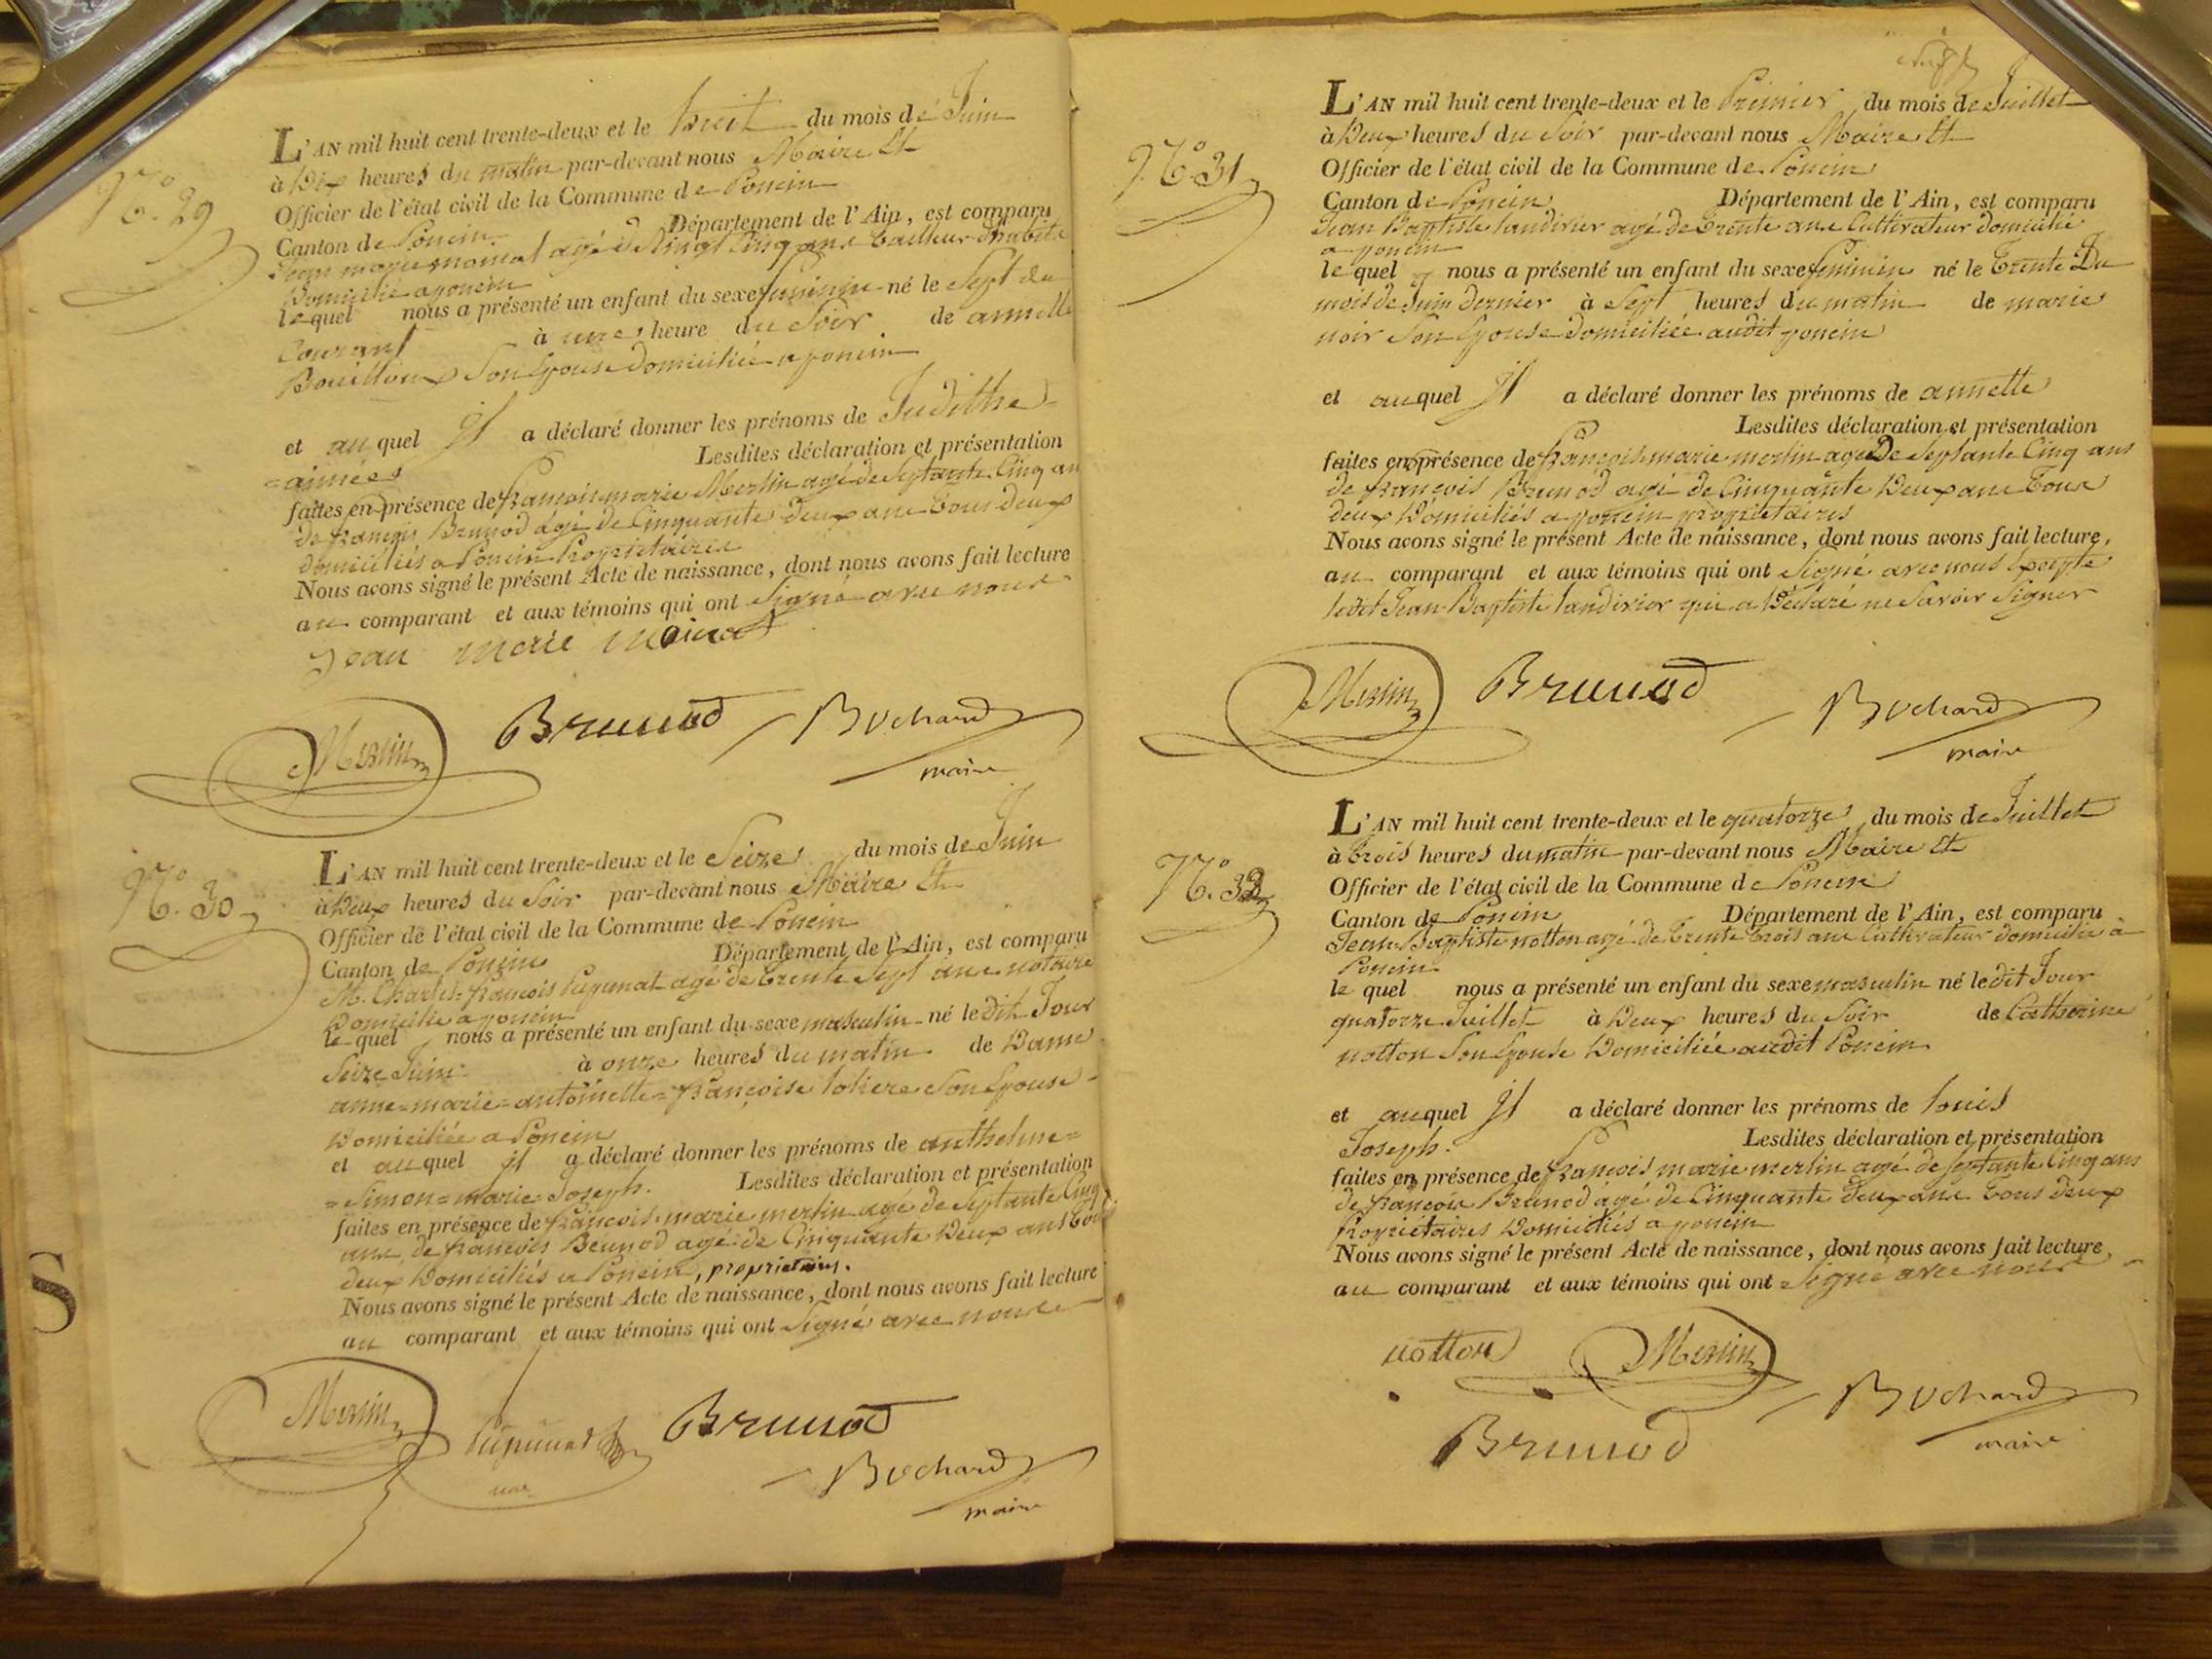 N.º 29
L'AN mil huit cent trente-deux et le huit du mois de Juin
à Dix heures du matin par-devant nous Maire Et
Officier de l'état civil de la Commune de Poncin
Canton de Poncin Département de l'Ain, est comparu
Jean marie moinat agé de Vingt Cinq ans tailleur d'habits
Domicilié a poncin
le quel nous a présenté un enfant du sexe feminin né le Sept du
Courant à une heure du Soir de annette
Bouilloux Son Epouse domiciliée a poncin
et au quel Il a déclaré donner les prénoms de Judithe=
=aimée Lesdites déclaration et présentation
faites en présence de francois marie Merlin agé de Septante Cinq an
de françois Brunod agé de Cinquante deux ans tous deux
domiciliés a Poncin Propriétaires
Nous avons signé le présent Acte de naissance, dont nous avons fait lecture
au comparant et aux témoins qui ont Signé avec nous
Jean marie moinat
Merlin Brunod Bochard
maire
N.º 30
L'AN mil huit cent trente-deux et le Seize du mois de Juin
à Deux heures du Soir par-devant nous Maire Et
Officier de l'état civil de la Commune de Poncin
Canton de Poncin Département de l'Ain, est comparu
M. Charles=françois agé de trente Sept ans notaire
Domicilié a poncin
le quel nous a présenté un enfant du sexe masculin né le dit Jour
Seize Juin à onze heures du matin de Dame
anne=marie=antoinette=françoise Son Epouse
Domiciliée a Poncin
et au quel il a déclaré donner les prénoms de anthelme=
=Simon=marie=Joseph. Lesdites déclaration et présentation
faites en présence de françois marie merlin agé de Septante Cinq
ans de françois Brunod agé de Cinquante Deux ans tous
deux Domiciliés a Poncin, propriétaires.
Nous avons signé le présent Acte de naissance, dont nous avons fait lecture
au comparant et aux témoins qui ont Signé avec nous
Merlin Brunod
Bochard
maire
N.º 31
L'AN mil huit cent trente-deux et le Premier du mois de Juillet
à Deux heures du Soir par-devant nous Maire Et
Officier de l'état civil de la Commune de Poncin
Canton de Poncin Département de l'Ain, est comparu
Jean Baptiste landirier agé de trente ans Cultivateur domicilié
a poncin
le quel nous a présenté un enfant du sexe feminin né le trente Du
mois de Juin dernier à Sept heures du matin de marie
noir Son Epouse domiciliée audit poncin
et auquel Il a déclaré donner les prénoms de annette
Lesdites déclaration et présentation
faites en présence de françois marie merlin agé De Septante Cinq ans
de françois Brunod agé de Cinquante Deux ans tous
deux Domiciliés a poncin propriétaires
Nous avons signé le présent Acte de naissance, dont nous avons fait lecture,
au comparant et aux témoins qui ont Signé avec nous Excepté
ledit Jean Baptiste landirier qui a Déclaré ne Savoir Signer
Merlin Brunod Bochard
maire
N.º 32
L'AN mil huit cent trente-deux et le quatorze du mois de Juillet
à trois heures du matin par-devant nous Maire Et
Officier de l'état civil de la Commune de Poncin
Canton de Poncin Département de l'Ain, est comparu
Jean=Baptiste notton agé de trente trois ans Cultivateur domicilié a
Poncin
le quel nous a présenté un enfant du sexe masculin né le dit Jour
quatorze Juillet à Deux heures du Soir de Catherine
notton Son Epouse Domiciliée audit Poncin
et auquel Il a déclaré donner les prénoms de louis
Joseph. Lesdites déclaration et présentation
faites en présence de françois marie merlin agé de Septante Cinq ans
de françois Brunod agé de Cinquante deux ans tous deux
Propriétaires Domiciliés a poncin
Nous avons signé le présent Acte de naissance, dont nous avons fait lecture,
au comparant et aux témoins qui ont Signé avec nous
notton Merlin
Bochard
Brunod maire
S